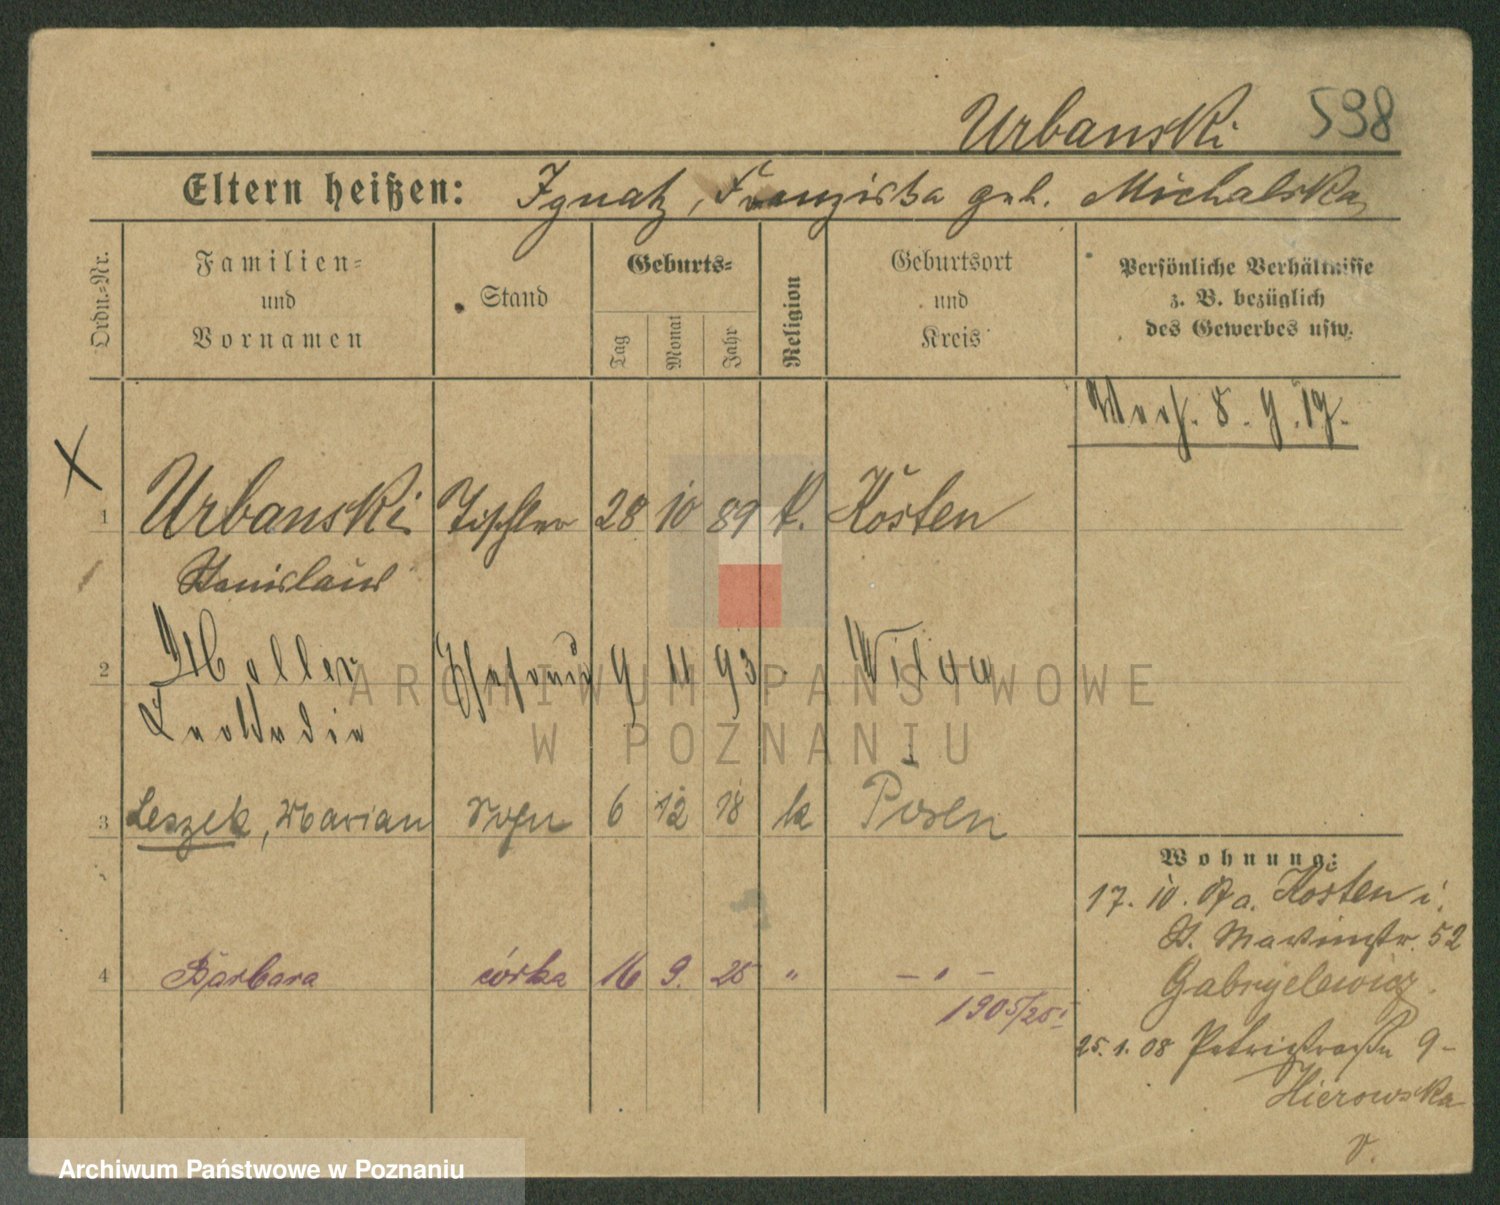 Urbanski 598
Eltern heißen: Ignatz, Franziska geb. Michalska
Ordn.=Nr.
Familien=
und
Vornamen
Stand
Geburts=
Tag
Monat
Jahr
Religion
Geburtsort
und
Kreis
Persönliche Verhältnisse
z. B. bezüglich
des Gewerbes usw.
8. 9. 19.
1 Urbanski Tischler 28 10 89 k. Kosten
Stanislaus
2 Holler Ehefrau 9 11 93 Wilda
Leokadia
3 Leszek, Marian Sohn 6 12 18 k Posen
Wohnung:
17. 10. 07 a. Kosten i.
St. Martinstr. 52
Gabryelewicz.
4 Barbara córka 16 9. 25 " – " –
1905/25
25. 1. 08 Petristraße 9 –
Hierowska
v.
ARCHIWUM PAŃSTWOWE
W POZNANIU
Archiwum Państwowe w Poznaniu